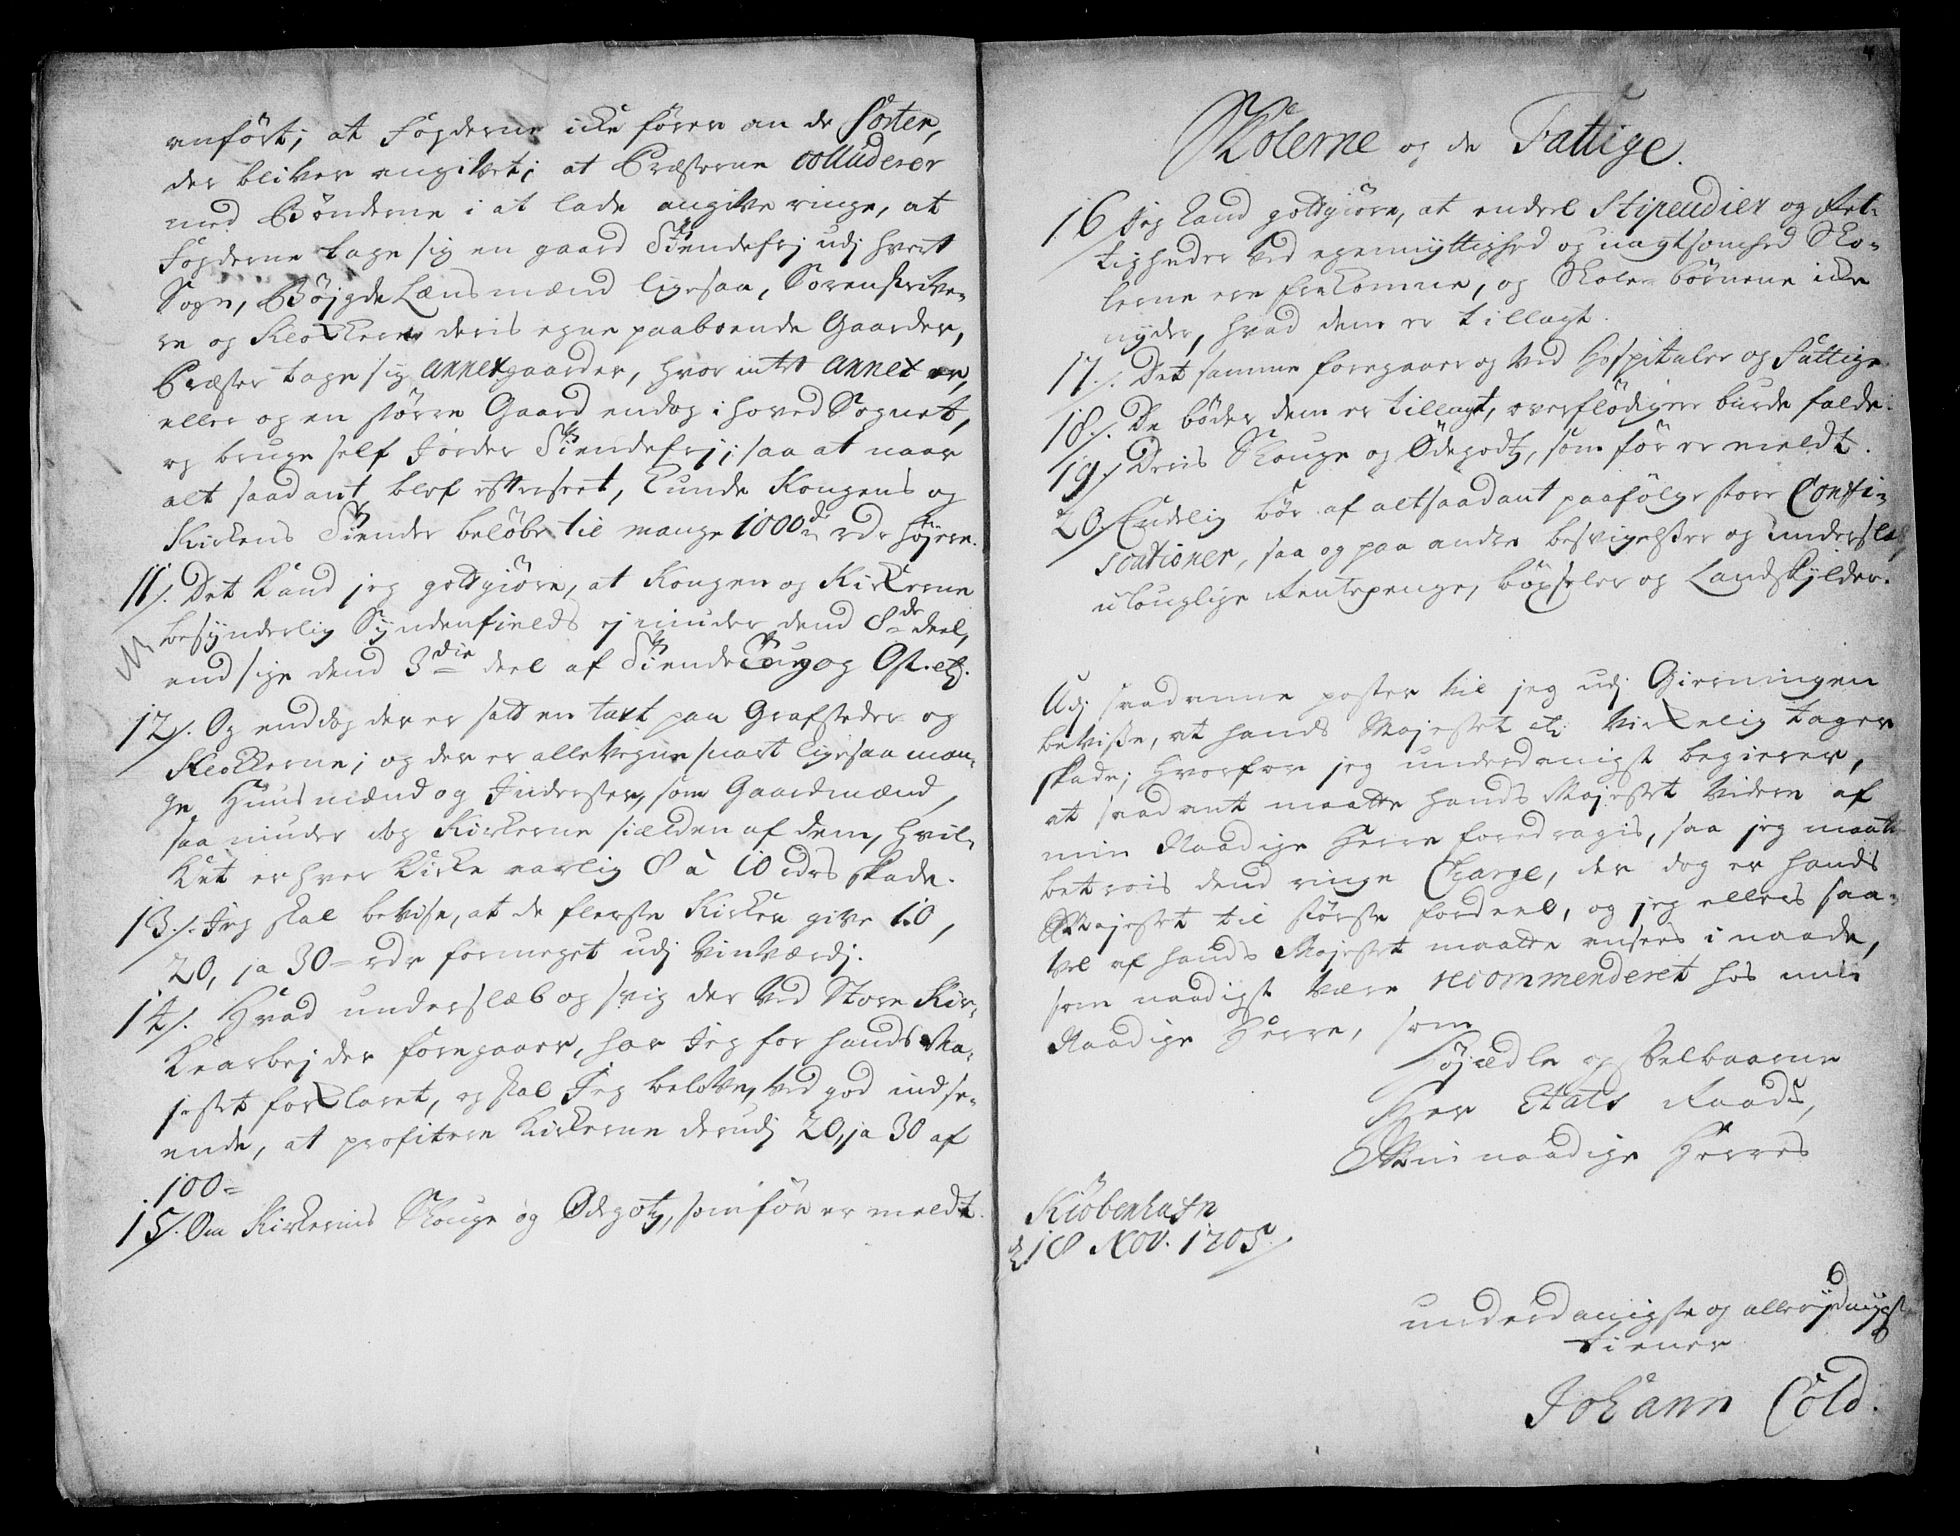 anført; at Fogderne icke fører an de Poster,
der bliver angivet; at Præsterne colluderer
med Bønderne i at lade angive ringe, at
Fogderne tage sig en gaard Tiendefrj udj hvert
Sogn, Bøjgde Lænsmænd ligesaa, Sorenskrive-
re og Klockere deris egne paaboende Gaarder,
Præster tage sig annexgaarder, hvor intet annex er,
eller og en større Gaard endog i hoved Sognet,
og bruge self Jorder Tiendefrj; saa at naar
alt saadant blef efterseet, kunde Kongens og
Kirkens Tiender beløbe til mange 1000de rdr højere.
11/. Det kand jeg gottgiøre, at Kongen og Kirkerne
besynderlig Syndenfields ej nyuder dend 8de deel,
end sige dend 3die deel af Tiende Qug og Ost. etc.
12/. Og enddog der er satt en taxt paa Grafsteder og
Klockerne; og der er allevegne snart ligesaa man-
ge Huusmænd og Inderster, som Gaardmænd,
saa niuder dog Kirkerne sielden af dem, hvil-
ket er hver Kirke aarlig 8 à 10 rdrs skade.
13/. Jeg skal bevise, at de fleeste Kirker give 10,
20, ja 30 rdr formeget udj Vinværdj.
14/. Hvad underslæb og svig der ved Store Kir-
kearbejder foregaaer, har Jeg for hands Ma-
jestet forklaret, og skal Jeg belove, ved god indse-
ende, at profitere Kirkerne derudj 20, ja 30 af
100
15/. Om Kirkernes Skouge og Ødegotz, som før er meldt.
Skolerne og de Fattige.
16/ Jeg kand gottgiøre, at endeel Stipendier og Ret-
tigheder ved egennyttighed og uagtsomhed Sko-
lerne ere frakomne, og Skole-børnene icke
nyder, hvad dem er tillagt.
17/. Det samme foregaaer og ved Hospitaler og Fattige
18/. De bøder dem er tillagt, overflødigere burde falde.
19/ Deris Skouge og Ødegodtz, som før er meldt.
20/ Endelig bør af altsaadant paafølge store Confi-
scationer, saa og paa andre besvigelser og underslæb,
ulouglige Rentepenge, bøxseler og Landskylder.
Udj saadanne poster vil jeg udj Gierningen
beviise, at hands Majestet virkelig tager
skade; hvorfor jeg underdanigst begierer,
at saadant maatte hands Majestet videre af
min Naadige Herre foredragis, saa jeg maatte
betrois dend ringe Charge, der dog er hands
Majestet til største fordeel, og jeg ellers saa-
vel af hands Majestet maatte ansees i naade,
som naadigst være recommenderet hos min
Naadige Herre, som
Højædle og Velbaarne
Her Etats Raads,
Min naadige Herres
Kiöbenhafn
d 18 Nov. 1705.
underdanigste og allerydmygste
tiener
Johann Cold.